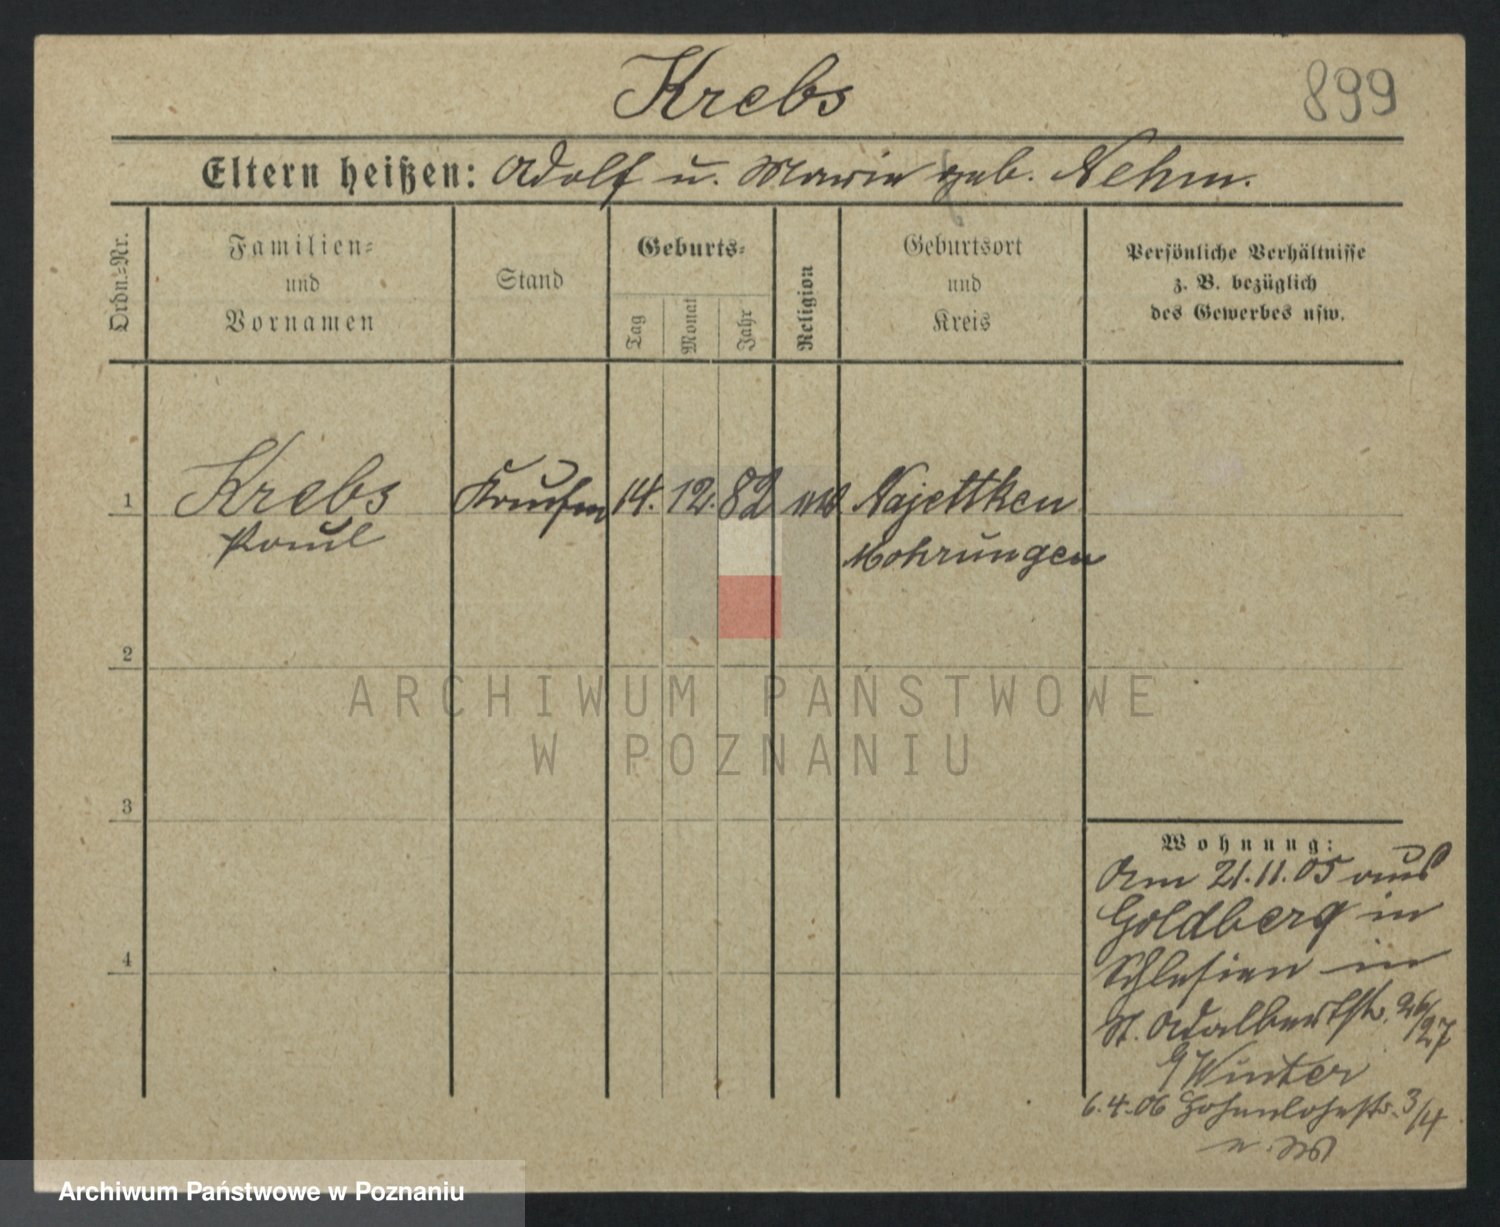 Krebs
899
Eltern heißen: Adolf u. Marie geb. Nehm.
Ordn.=Nr.
Familien=
und
Vornamen
Stand
Geburts=
Tag
Monat
Jahr
Religion
Geburtsort
und
Kreis
Persönliche Verhältnisse
z. B. bezüglich
des Gewerbes usw.
1
Krebs
Paul
Kaufm
14. 12. 82
Najettken
Mohrungen
2
ARCHIWUM PAŃSTWOWE
W POZNANIU
3
4
Wohnung:
Am 21.11.05 aus
Goldberg in
Schlesien in
St. Adalbertstr. 26/27
Winter
6.4.06 Hohenlohestr. 3/4
Archiwum Państwowe w Poznaniu